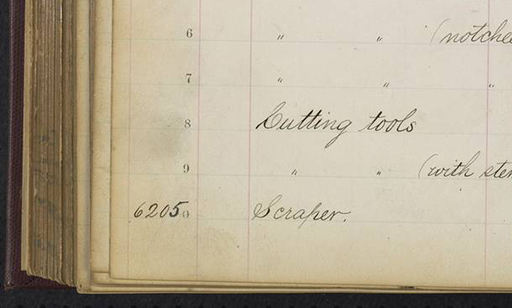 6 " " (notche
7 " " "
8 Cutting tools
9 " " (with ste
62050 Scraper.